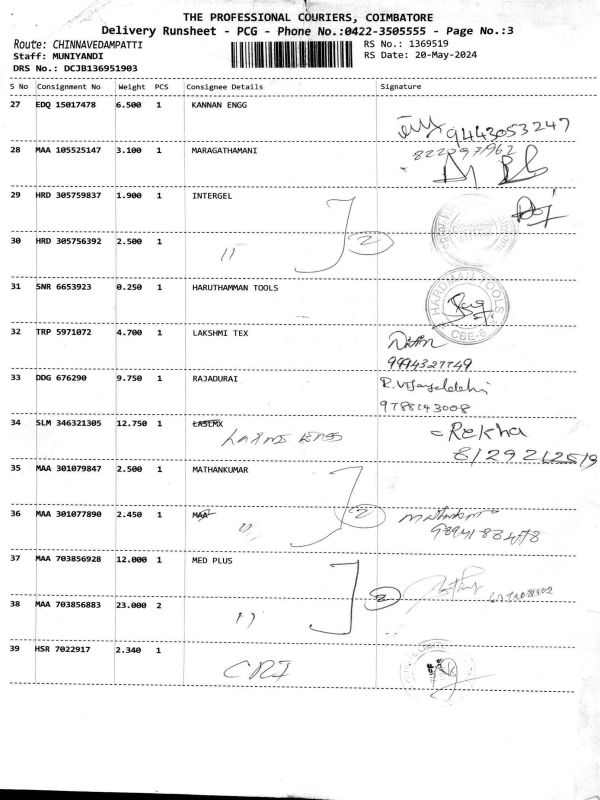 THE PROFESSIONAL COURIERS, COIMBATORE
Delivery Runsheet - PCG - Phone No.:0422-3505555 - Page No.:3
Route: CHINNAVEDAMPATTI
RS No.: 1369519
Staff: MUNIYANDI
RS Date: 20-May-2024
DRS No.: DCJB136951903
S No Consignment No Weight PCS Consignee Details Signature
27 EDQ 15017478 6.500 1 KANNAN ENGG
9443053247
28 MAA 105525147 3.100 1 MARAGATHAMANI
29 HRD 305759837 1.900 1 INTERGEL
30 HRD 305756392 2.500 1 11 2
31 SNR 6653923 0.250 1 HARUTHAMMAN TOOLS
HARDMAN TOOLS
CBE-6
32 TRP 5971072 4.700 1 LAKSHMI TEX
33 DDG 676290 9.750 1 RAJADURAI
34 SLM 346321305 12.750 1 LASLMX
= Rekha
35 MAA 301079847 2.500 1 MATHANKUMAR
36 MAA 301077890 2.450 1 MAA 11 2
37 MAA 703856928 12.000 1 MED PLUS
38 MAA 703856883 23.000 2 11 2
39 HSR 7022917 2.340 1 CRI